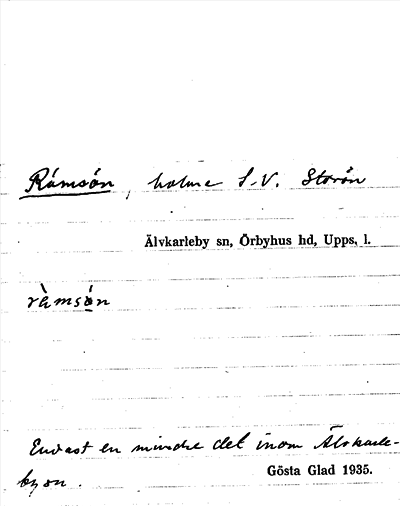 Råmsön, holme S.V. Storön
Älvkarleby sn, Örbyhus hd, Upps. l.
ràmsó̤n
Endast en mindre del inom Älvkarle-
by sn.
Gösta Glad 1935.